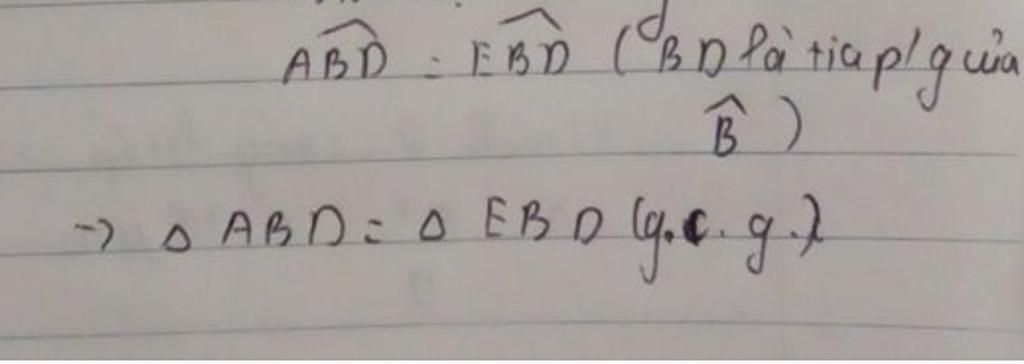 ABD̂ = EBD̂ (BD là tia p/g của
B̂ )
→ Δ ABD = Δ EBD (g.c.g.)